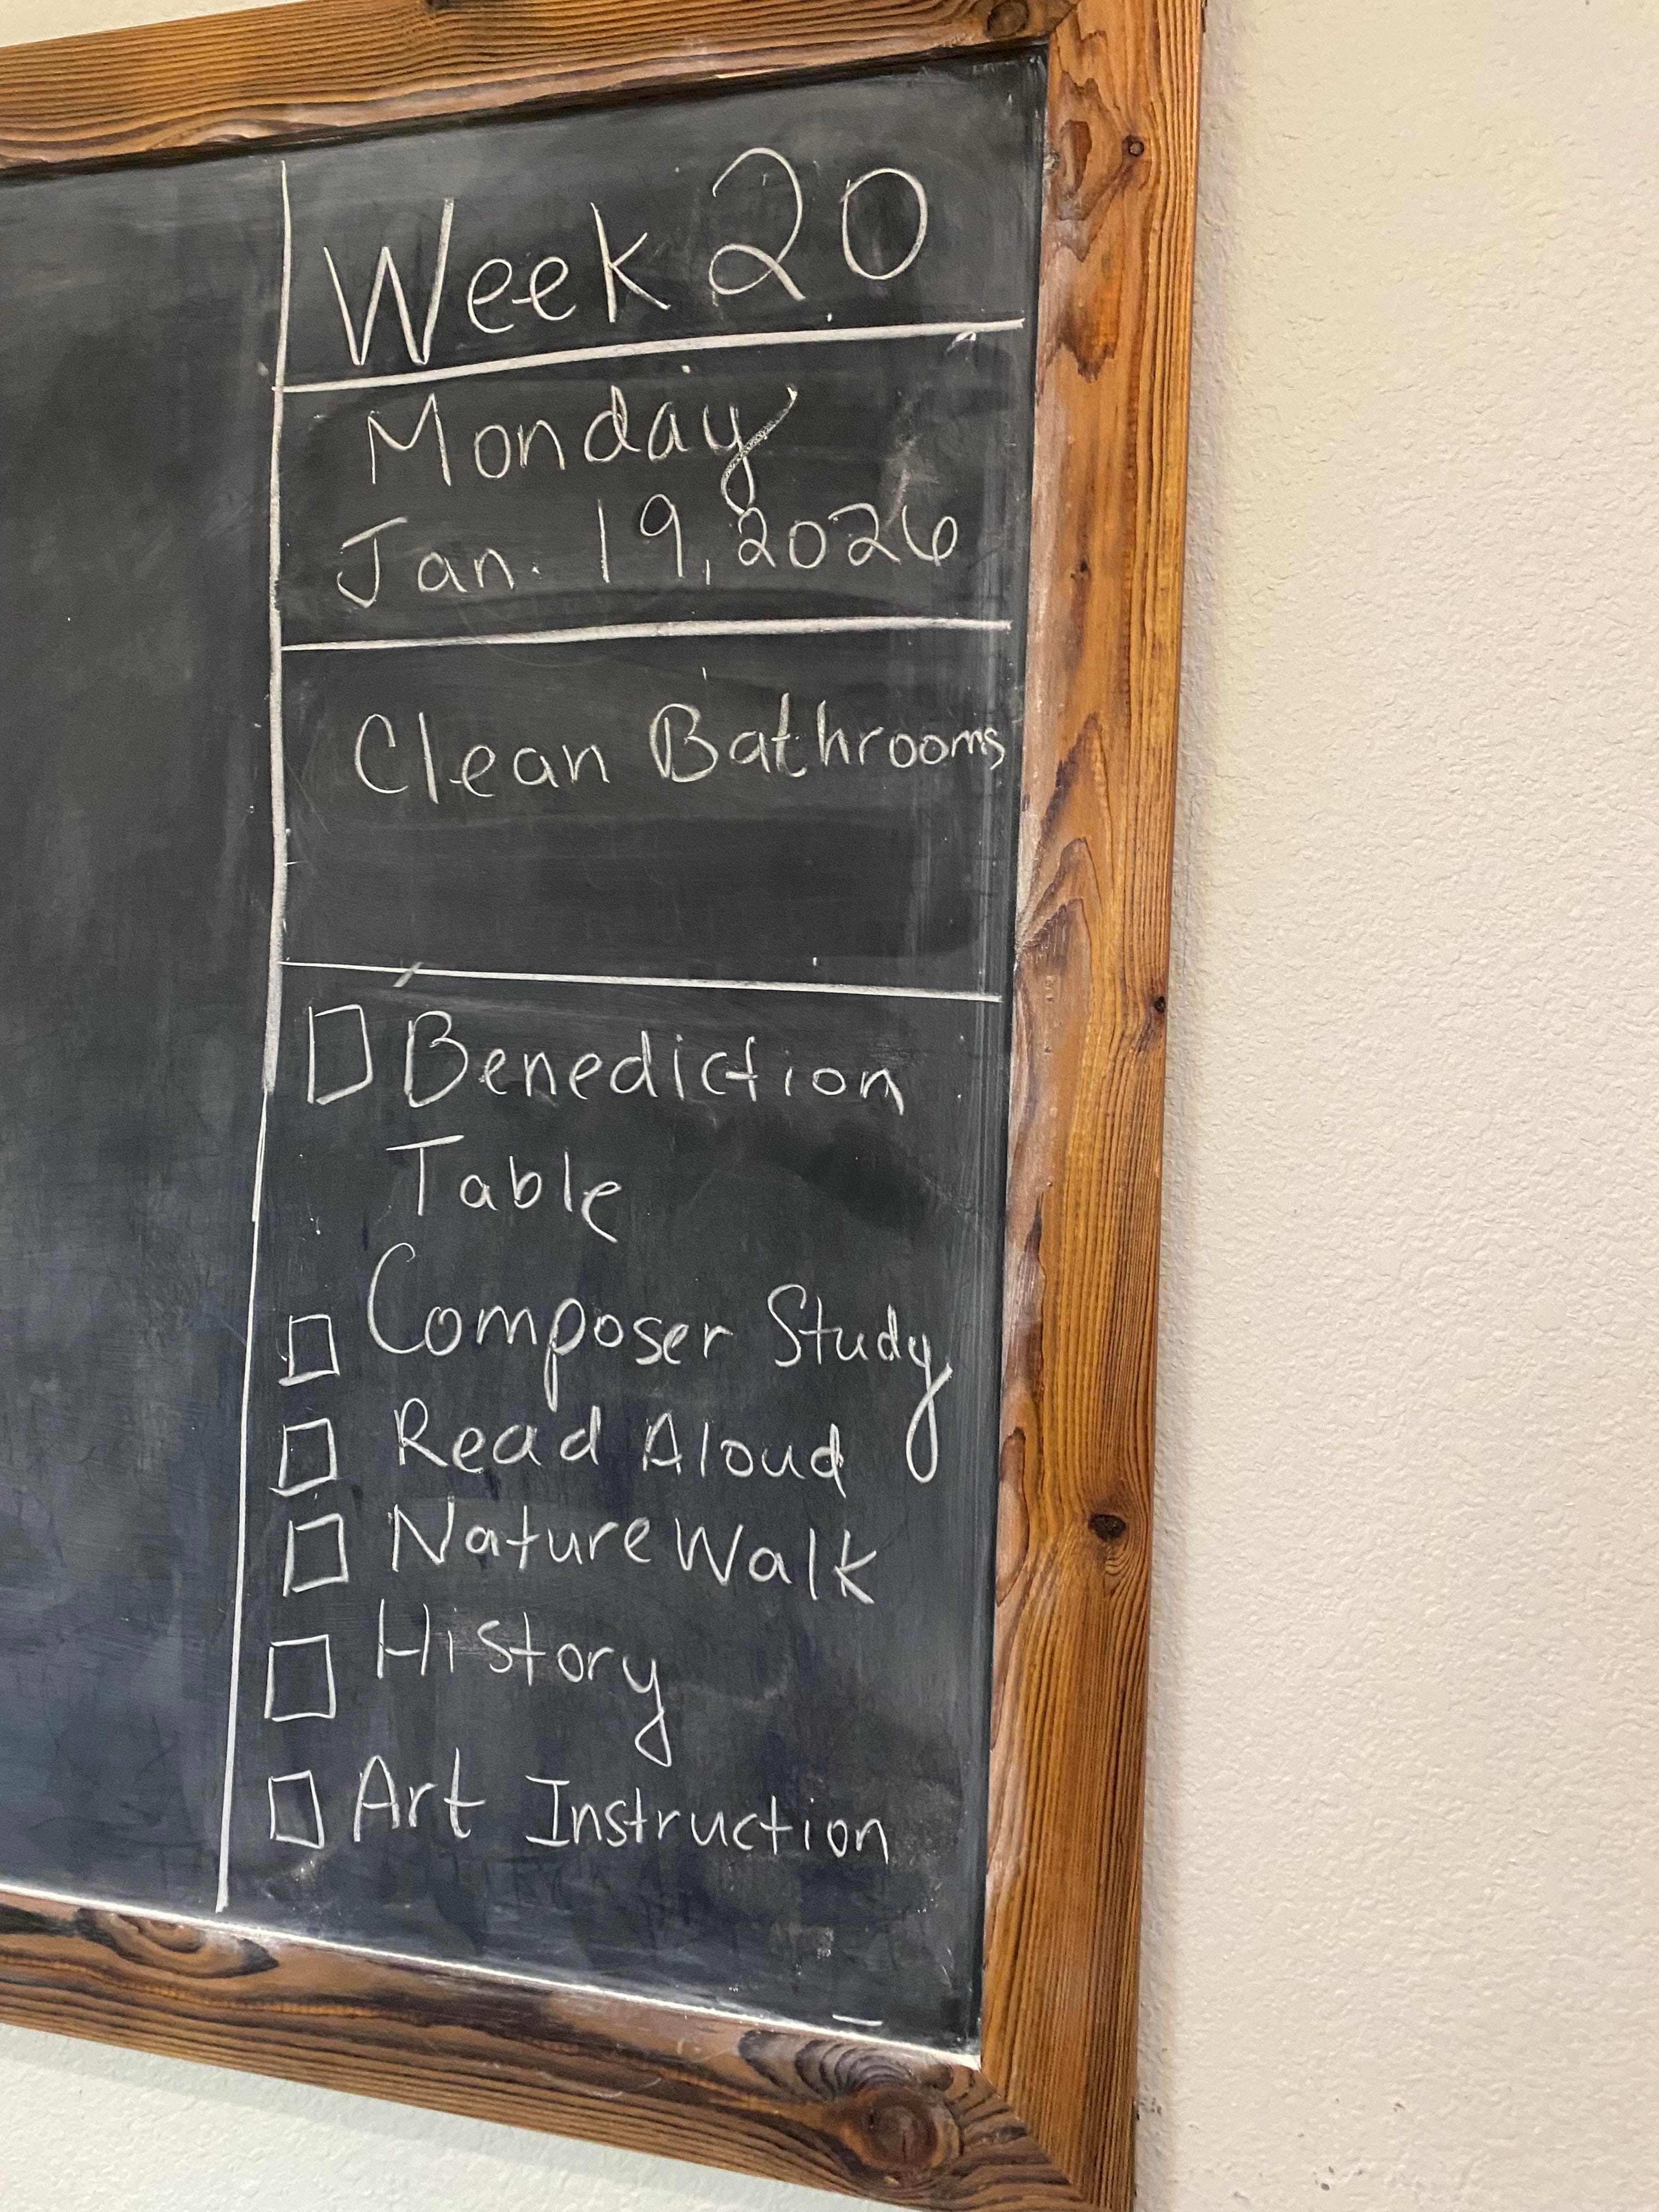 Week 20
Monday
Jan. 19, 2026
Clean Bathrooms
Benediction
Table
Composer Study
Read Aloud
Nature Walk
History
Art Instruction